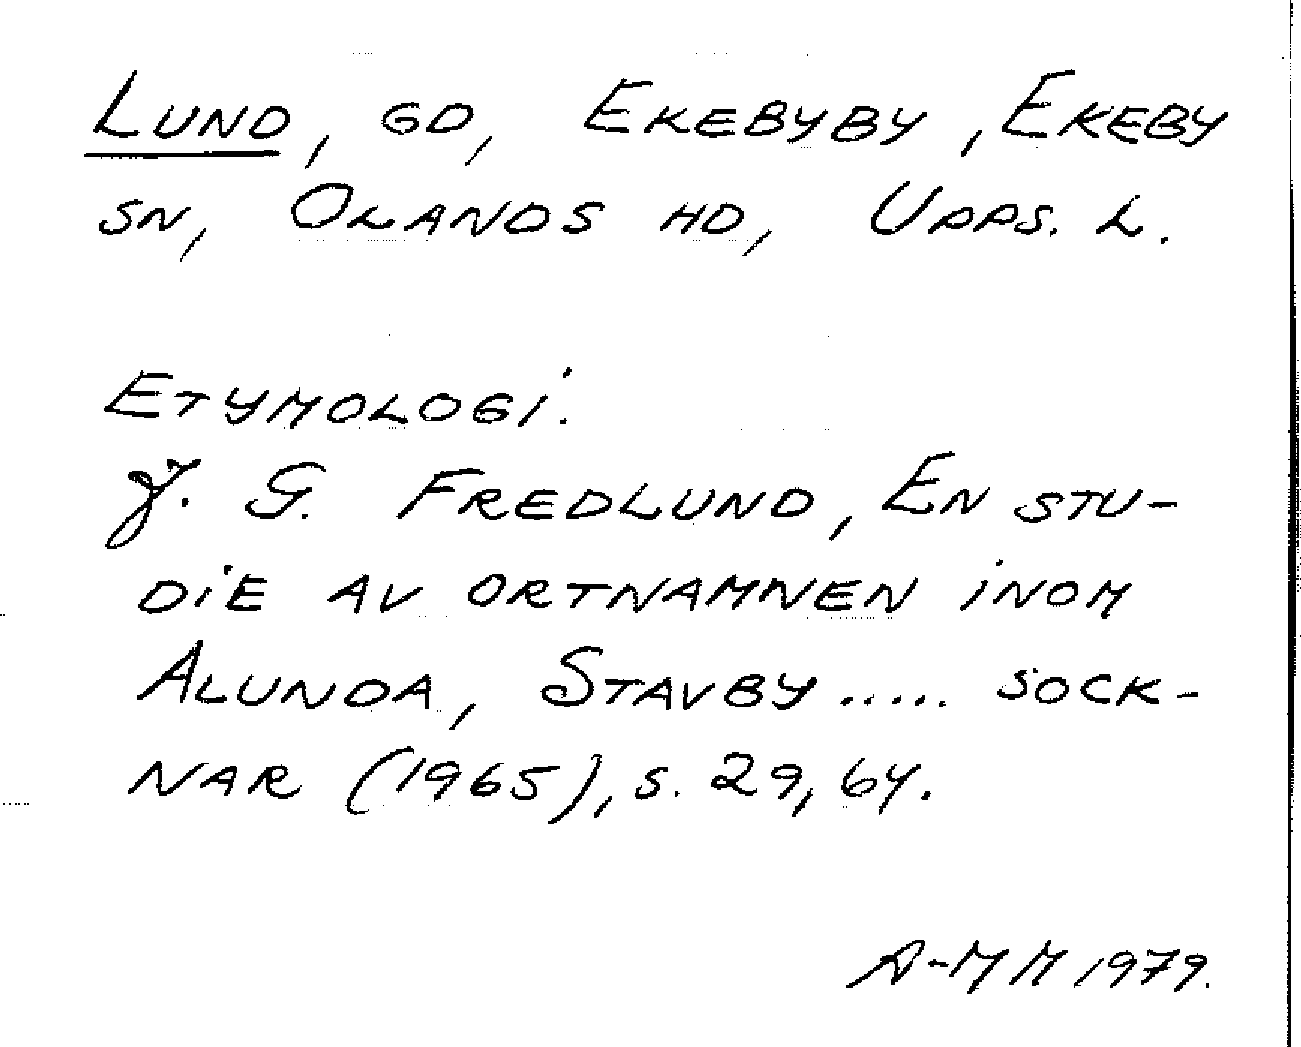 LUND, GD, EKEBYBY, EKEBY
SN, OLANDS HD, UPPS. L.
ETYMOLOGI.
J. G. FREDLUND, EN STU-
DIE AV ORTNAMNEN INOM
ALUNDA, STAVBY ..... SOCK-
NAR (1965), S. 29, 64.
A-MM 1979.